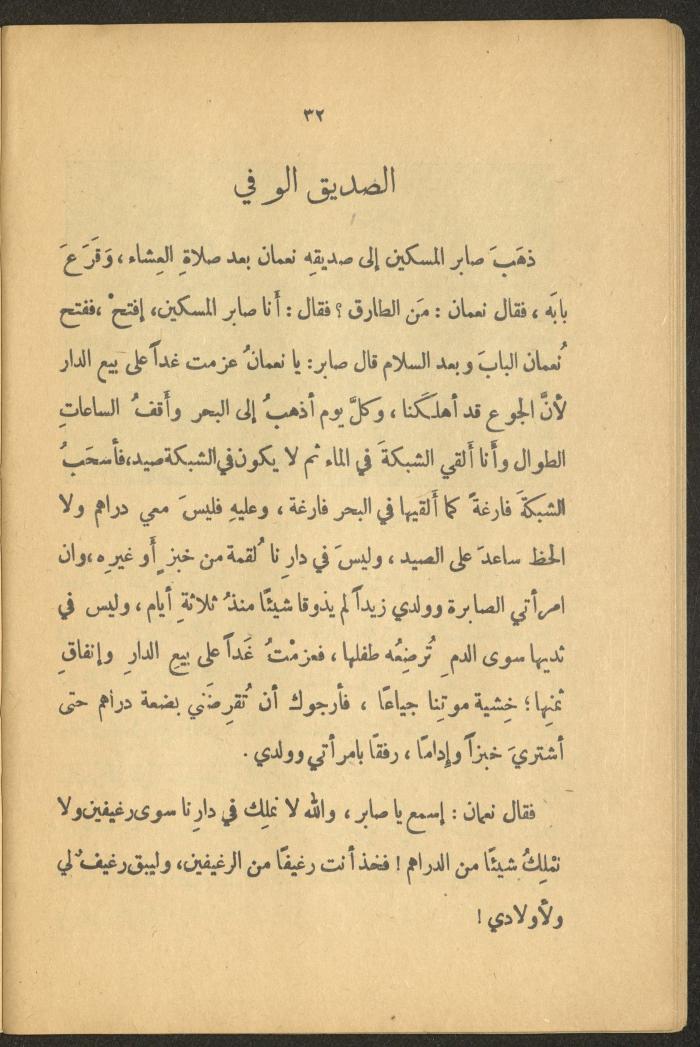 ٣٢
الصديق الوفي
ذهَبَ صابر المسكين إلى صديقهِ نعمان بعد صلاةِ العِشاء ، وَقَرَعَ
بابَه ، فقال نعمان : مَن الطارق ؟ فقال : أَنا صابر المسكين، إفتحْ ،ففتح
نُعمان البابَ وبعد السلام قال صابر: يا نعمانُ عزمت غداً على بيع الدار
لأنَّ الجوع قد أهلكَنا ، وكلَّ يوم أذهبُ إلى البحر وأَقفُ الساعاتِ
الطوال وأَنا أَلقي الشبكةَ في الماء ثم لا يكون في الشبكة صيد،فأسحَبُ
الشبكةَ فارغةً كما أَلقيها في البحر فارغة ، وعليهِ فليسَ معي دراهم ولا
الحظ ساعدَ على الصيد ، وليسَ في دارِنا لُقمة من خبزٍ أَو غيرِه ،وان
امرأتي الصابرة وولدي زيداً لم يذوقا شيئًا منذُ ثلاثةِ أيام ، وليس في
ثديها سوى الدمِ تُرضِعُه طفلها ، فعزمْتُ غَداً على بيعِ الدارِ وإنفاقِ
ثمنِها ؛ خِشية موتِنا جياعًا ، فأرجوك أن تُقرِضَني بضعة دراهم حتى
أشتريَ خبزاً وإدامًا ، رفقًا بامرأتي وولدي .
فقال نعمان : إسمع يا صابر ، والله لا نملِك في دارِنا سوى رغيفين ولا
نمْلِكُ شيئًا من الدراهم ! فخذ أنت رغيفًا من الرغيفين، وليبق رغيفٌ لي
ولأولادي !